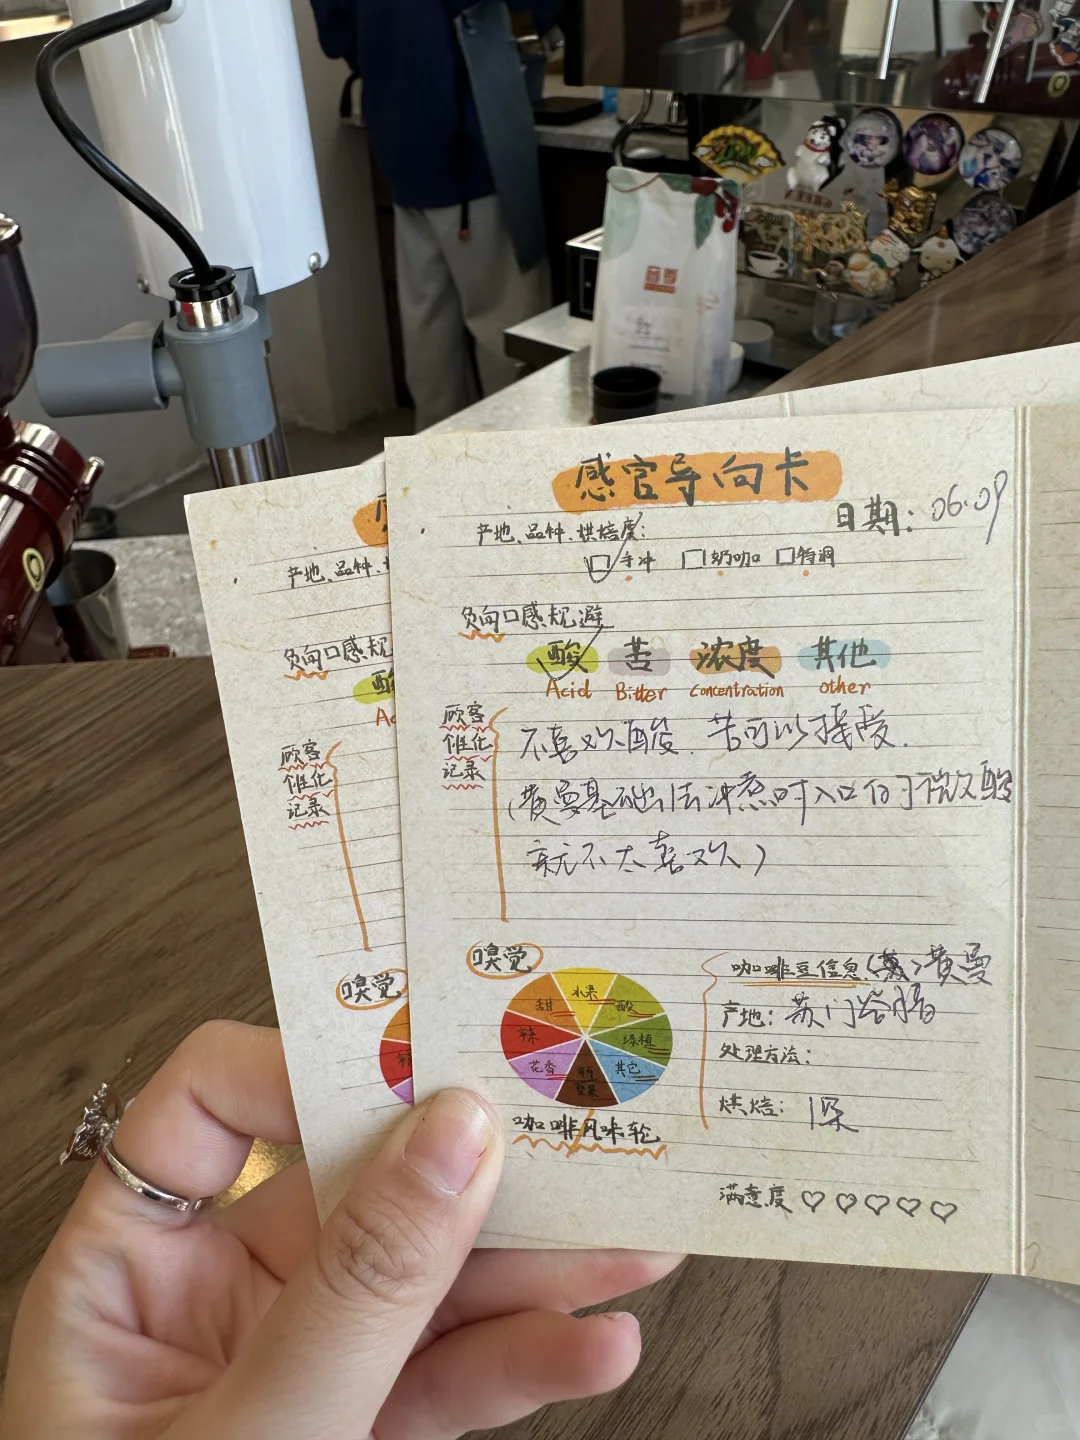 感官导向卡
日期：06.09
产地、品种、烘焙度：
手冲 奶咖 特调
负向口感规避
酸 苦 浓度 其他
Acid Bitter Concentration other
顾客
个性化
记录
不喜欢酸，苦可以接受。
（黄曼基础法冲煮时入口的微微酸
就不太喜欢）
嗅觉
水果
甜 酸
辣 绿植
花香 其它
坚果
咖啡风味轮
咖啡豆信息 黄曼
产地：苏门答腊
处理方法：
烘焙：深
满意度
产地、品种、
负向口感规
顾客
个性化
记录
嗅觉